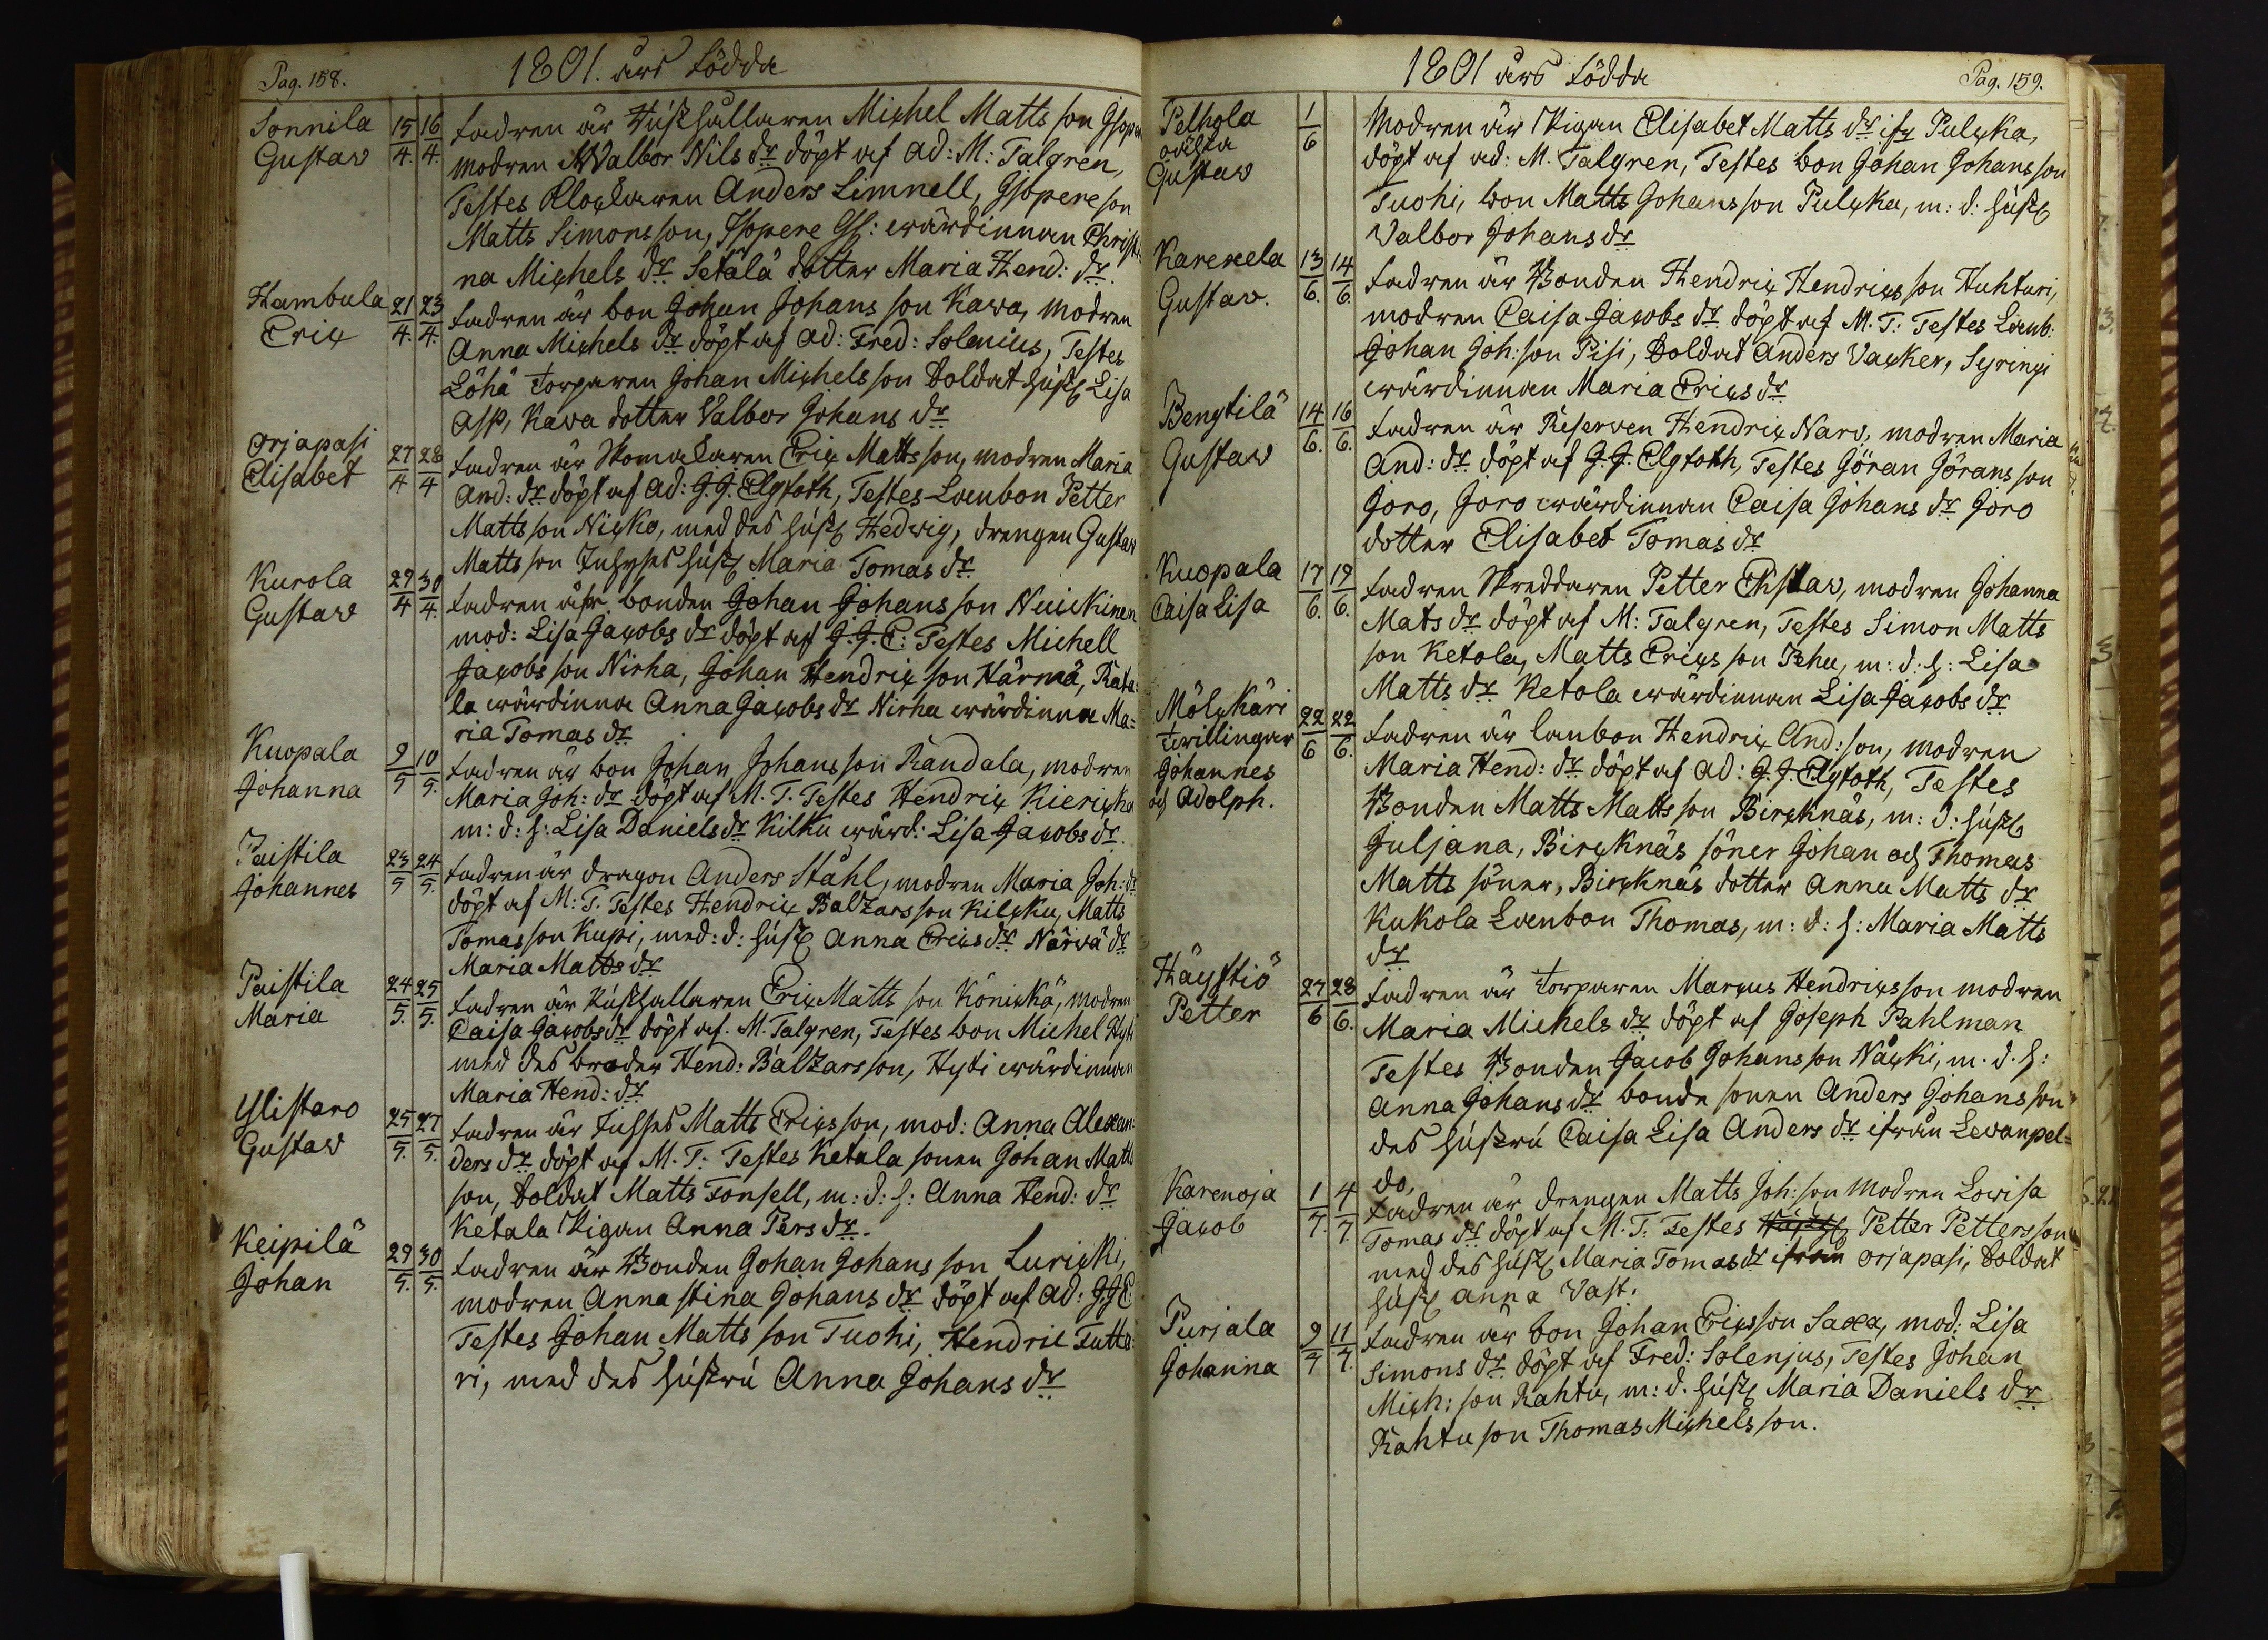 Pag. 158.
1801. års födda
Sonnila 15/4. 16/4. fadren är Michel Matts son
Gustav modren Walbor Nils dr döpt af Ad: M: Talgren,
Testes Klockaren Anders Limnell, Isopere son
Matts Simons son, Isopere wärdinnan Christi
na Michels dr Setälä dotter Maria Hend: dr.
Hambula 21/4. 23/4. fadren är bon Johan Johans son Kawa, modren
Eric Anna Michels dr döpt af Ad: Fred: Solenius, Testes
Löhä torparen Johan Michels son Soldat hust Lisa
Asp, Kawa dotter Valbor Johans dr
Orjapasi 27/4 28/4 fadren är Skomakaren Eric Matts son, modren Maria
Elisabet And: dr döpt af Ad: J. J. Elgfoth, Testes Lanbon Petter
Matts son Nicko, med des hust Hedvig, drengen Gustav
Matts son hust Maria Tomas dr
Kurola 29/4 30/4. fadren är bonden Johan Johans son Nuickinen
Gustav mod: Lisa Jacobs dr döpt af J. J. E: Testes Michell
Jacobs son Nirha, Johan Hendric son Härmä, Rata
la wärdinna Anna Jacobs dr Nirha wärdinna Ma=
ria Tomas dr
Kuopala 9/5 10/5. fadren är bon Johan Johans son Randala, modren
Johanna Maria Joh: dr döpt af M. T. Testes Hendric Kiericka
m: d: h: Lisa Daniels dr Kilku wärd: Lisa Jacobs dr.
Paistila 23/5 24/5. fadren är dragon Anders Ståhl, modren Maria Joh: dr
Johannes döpt af M: T. Testes Hendric Baltzars son Kilcku, Matts
Tomas son Kupi, med: d: hust Anna Erics dr Närvä dr
Maria Matts dr
Paistila 24/5. 25/5. fadren är Rusthallaren Eric Matts son Könickä, modren
Maria Caisa Jacobs dr döpt af. M. Talgren, Testes bon Michel Hyti
med des broder Hend: Baltzars son, Hyti wärdinnan
Maria Hend: dr
Ylistaro 25/5. 27/5. fadren är Matts Erics son, mod: Anna Alexan=
Gustav ders dr döpt af M. T: Testes Ketala sonen Johan Matts
son, Soldat Matts Fonsell, m: d: h: Anna Hend: dr
Ketala Pigan Anna Pers dr.
Keipilä 29/5. 30/5. fadren är Bonden Johan Johans son Luricki,
Johan modren Anna stina Johans dr döpt af Ad: J. J. E:
Testes Johan Matts son Tuohi, Hendric Futta:
ri, med des hustru Anna Johans dr
1801 års födda
Pag. 159.
Pelhola 1/6 Modren är Pigan Elisabet Matts dr ifr Pulcka,
oächta döpt af ad: M. Talgren, Testes bon Johan Johans son
Gustav Tuohi, bon Matts Johans son Pulcka, m: d: hust
Valbor Johans dr
Karexela 13/6. 14/6. fadren är Bonden Hendric Hendrics son Huhturi,
Gustav. modren Caisa Jacobs dr döpt af M. T: Testes Lanb:
Johan Joh: son Pisi, Soldat Anders Vacker, Syringi
wärdinnan Maria Erics dr
Bengtilä 14/6. 16/6. fadren är Reserven Hendric Narv, modren Maria
Gustav And: dr döpt af J. J. Elgfoth, Testes Göran Görans son
Joro, Joro wärdinnan Caisa Johans dr Joro
dotter Elisabet Tomas dr
Kuopala 17/6. 19/6. fadren Skreddaren Petter Ekstav, modren Johanna
Caisa Lisa Mats dr döpt af M: Talgren, Testes Simon Matts
son Ketola, Matts Erics son m: d: h: Lisa
Matts dr Ketola wärdinnan Lisa Jacobs dr
Mölckäri 22/6 22/6. fadren är lanbon Hendric And: son, modren
twillingar Maria Hend: dr döpt af Ad: J. J. Elgfoth, Testes
Johannes Bonden Matts Matts son Bircknäs, m: d: hust
och Adolph. Juljana, Bircknäs söner Johan och Thomas
Matts söner, Bircknäs dotter Anna Matts dr
Kukola Lanbon Thomas, m: d: h: Maria Matts
dr
Häystiö 27/6 28/6. fadren är torparen Marcus Hendrics son modren
Petter Maria Michels dr döpt af Joseph Pahlman
Testes Bonden Jacob Johans son Näcki, m. d. h:
Anna Johans dr bonde sonen Anders Johans son
des hustru Caisa Lisa Anders dr ifrån Levanpel=
do,
Karenoja 1/7. 4/7. fadren är drengen Matts Joh: son modren Lovisa
Jacob Tomas dr döpt af M. T: Testes Petter Petters son
med des hust Maria Tomas dr ifrån Orjapasi, Soldat
hust Anna Vast.
Purjala 9/7 11/7. fadren är bon Johan Erics son Saxa, mod: Lisa
Johanna Simons dr döpt af Fred: Solenjus, Testes Johan
Mich: son Rahtu, m: d. hust Maria Daniels dr
Rahtu son Thomas Michels son.